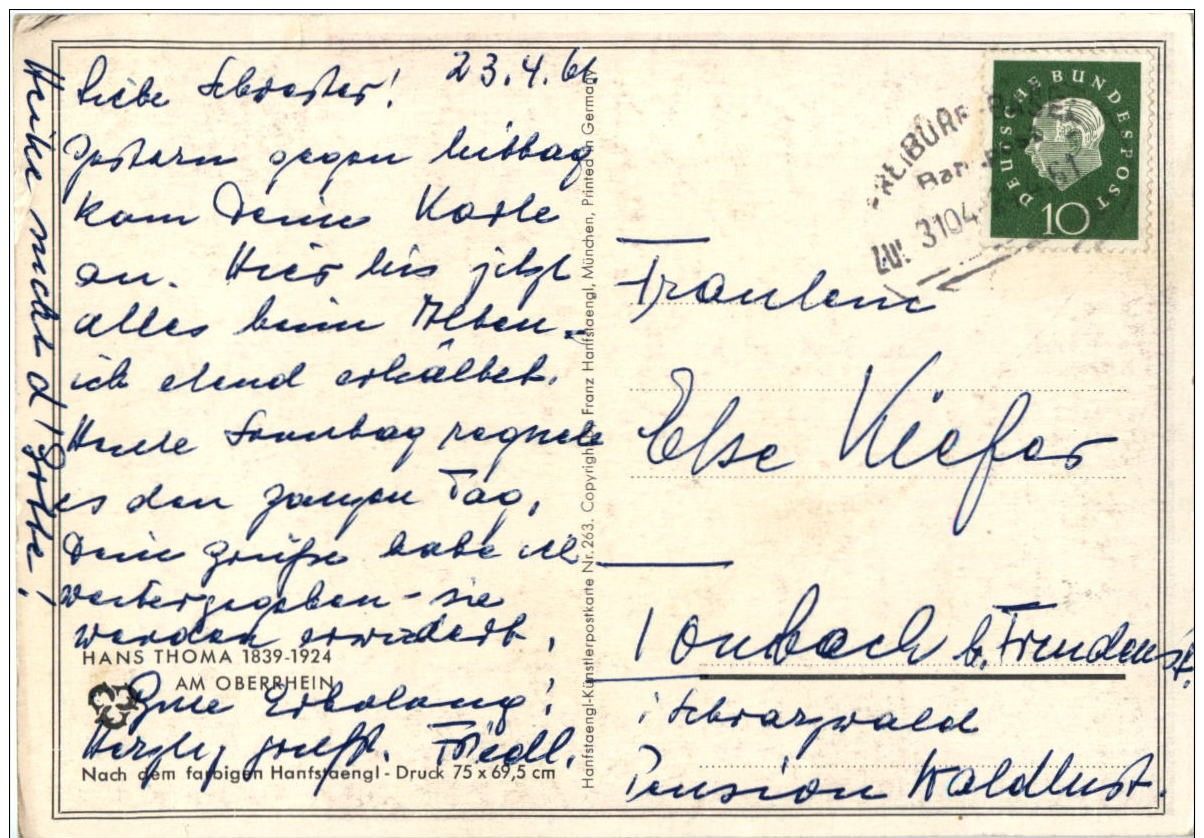 23.4.61
Liebe Schwester!
Gestern gegen Mittag
kam Deine Karte
an. Hier bis jetzt
alles beim Alten –
ich elend erkältet.
Heute Sonntag regnete
es den ganzen Tag.
Deine Grüße habe ich
weitergegeben – sie
werden erwidert.
Gute Erholung!
Herzlich grüßt. Friedl.
HANS THOMA 1839-1924
AM OBERRHEIN
Nach dem farbigen Hanfstaengl-Druck 75 x 69,5 cm
Hanfstaengl-Künstlerpostkarte Nr. 263. Copyright Franz Hanfstaengl, München, Printed in Germany
DEUTSCHE BUNDESPOST
10
FREIBURG
Zug 3104
61
Fräulein
Else Kiefer
Tonbach b. Freudenst.
i Schwarzwald
Pension Waldlust.